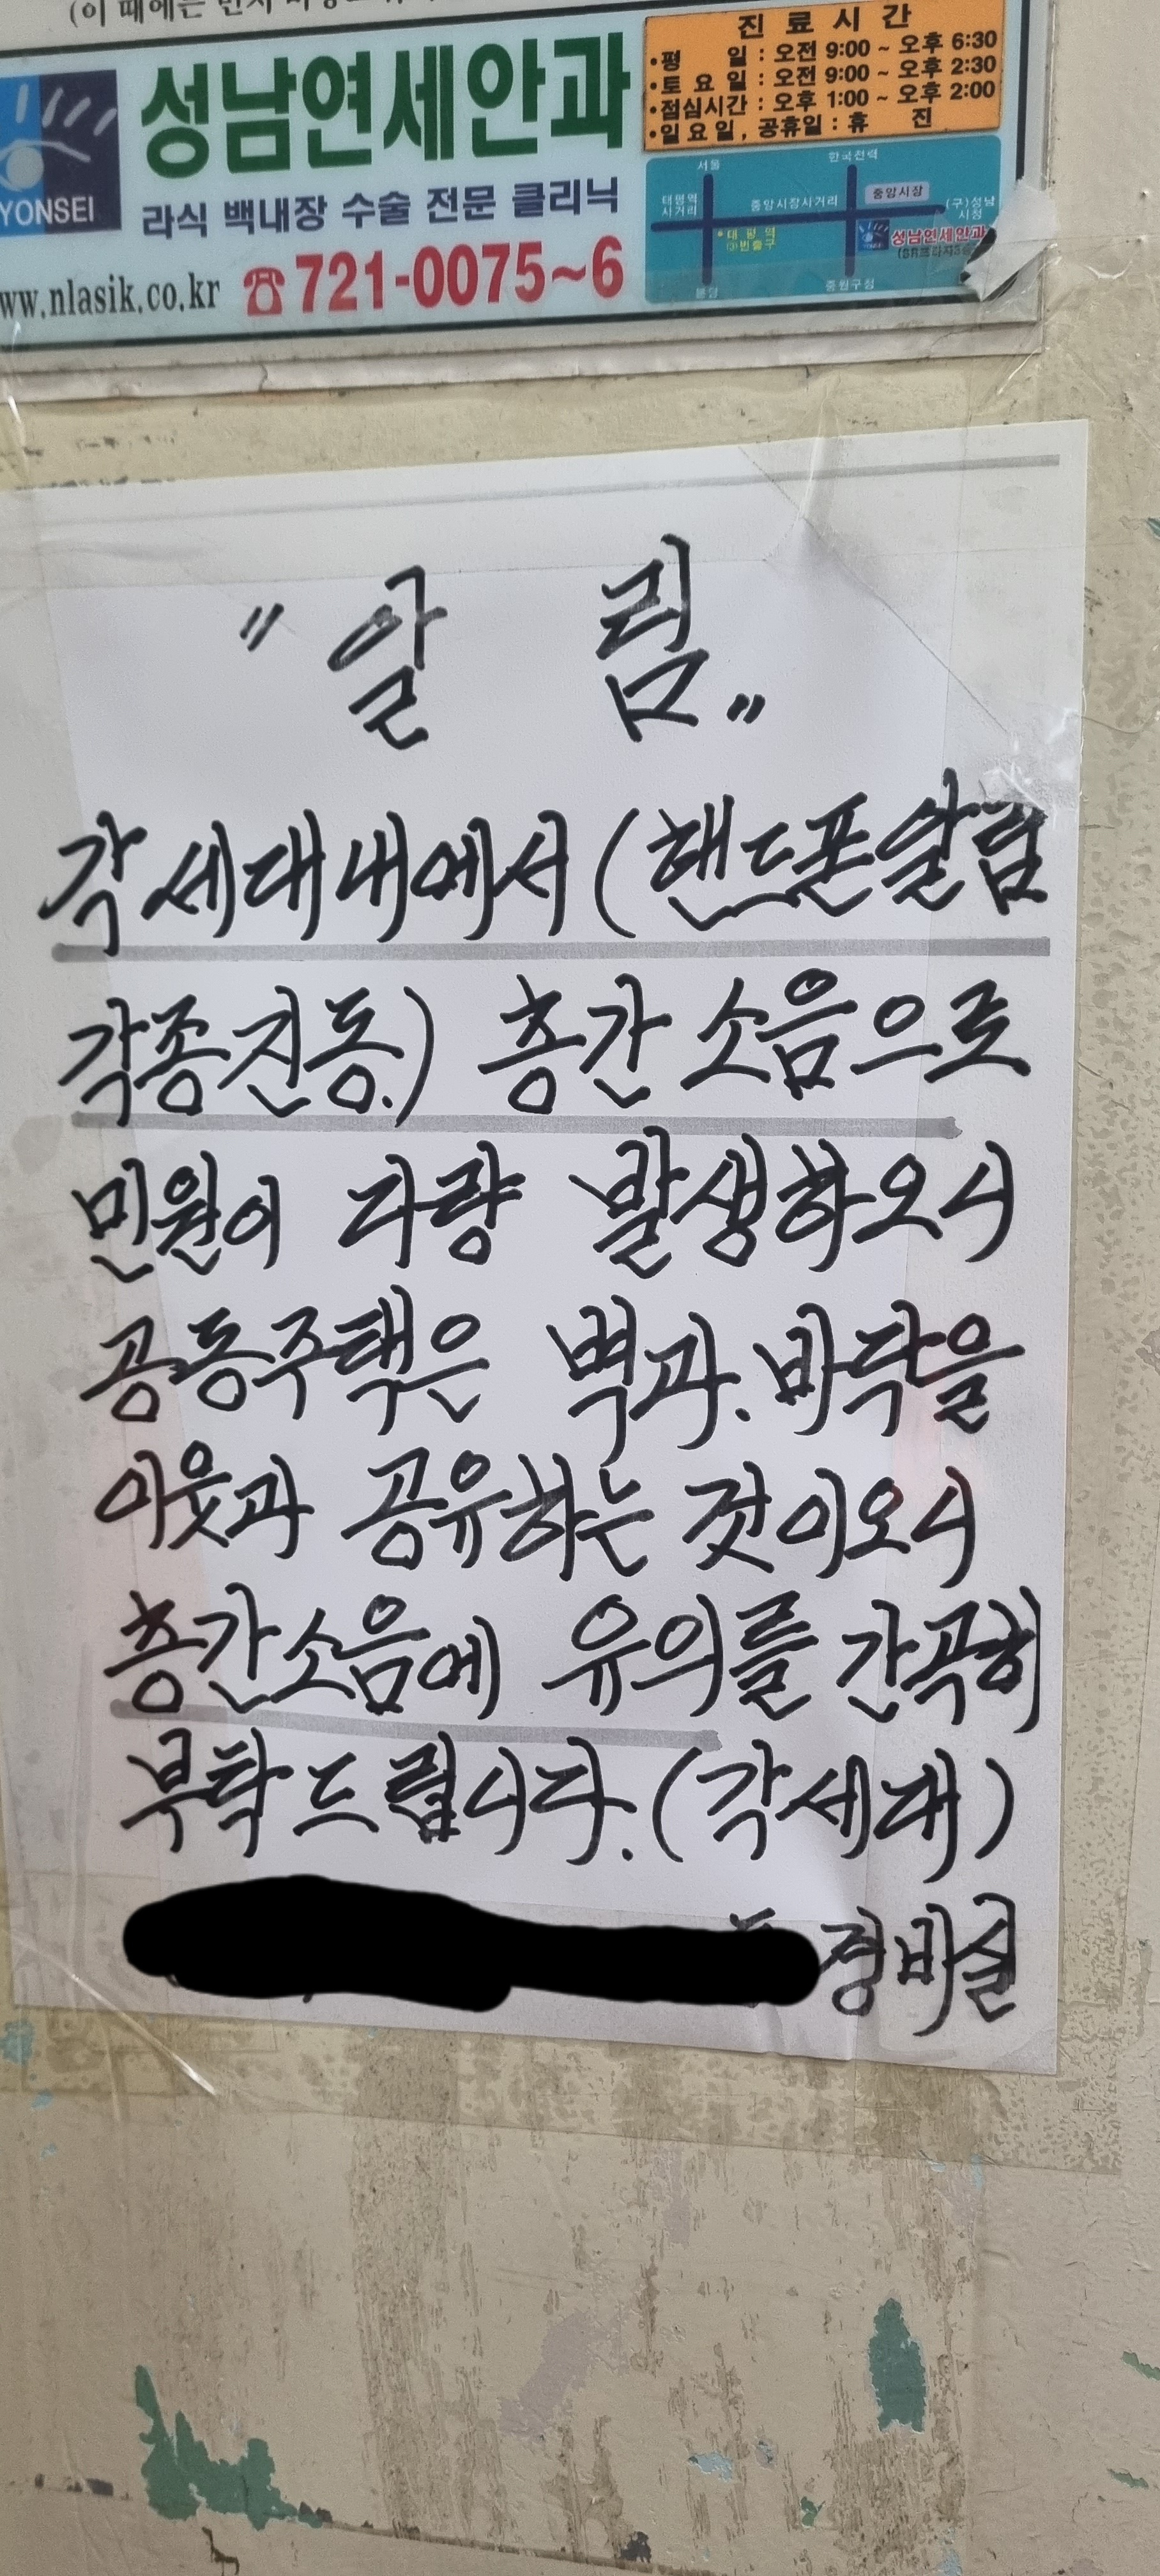 성남연세안과
라식 백내장 수술 전문 클리닉
YONSEI
www.nlasik.co.kr ☎721-0075~6
진 료 시 간
•평 일 : 오전 9:00 ~ 오후 6:30
•토 요 일 : 오전 9:00 ~ 오후 2:30
•점심시간 : 오후 1:00 ~ 오후 2:00
•일요일, 공휴일 : 휴 진
서울
한국전력
태평역
사거리
중앙시장사거리
중앙시장
(구)성남
시청
태평역
성남연세안과
분당
중원구청
"알 림"
각 세대 내에서 (핸드폰알림
각종진동.) 층간 소음으로
민원이 다량 발생하오니
공동주택은 벽과. 바닥을
이웃과 공유하는 것이오니
층간소음에 유의를 간곡히
부탁드립니다. (각세대)
경비실